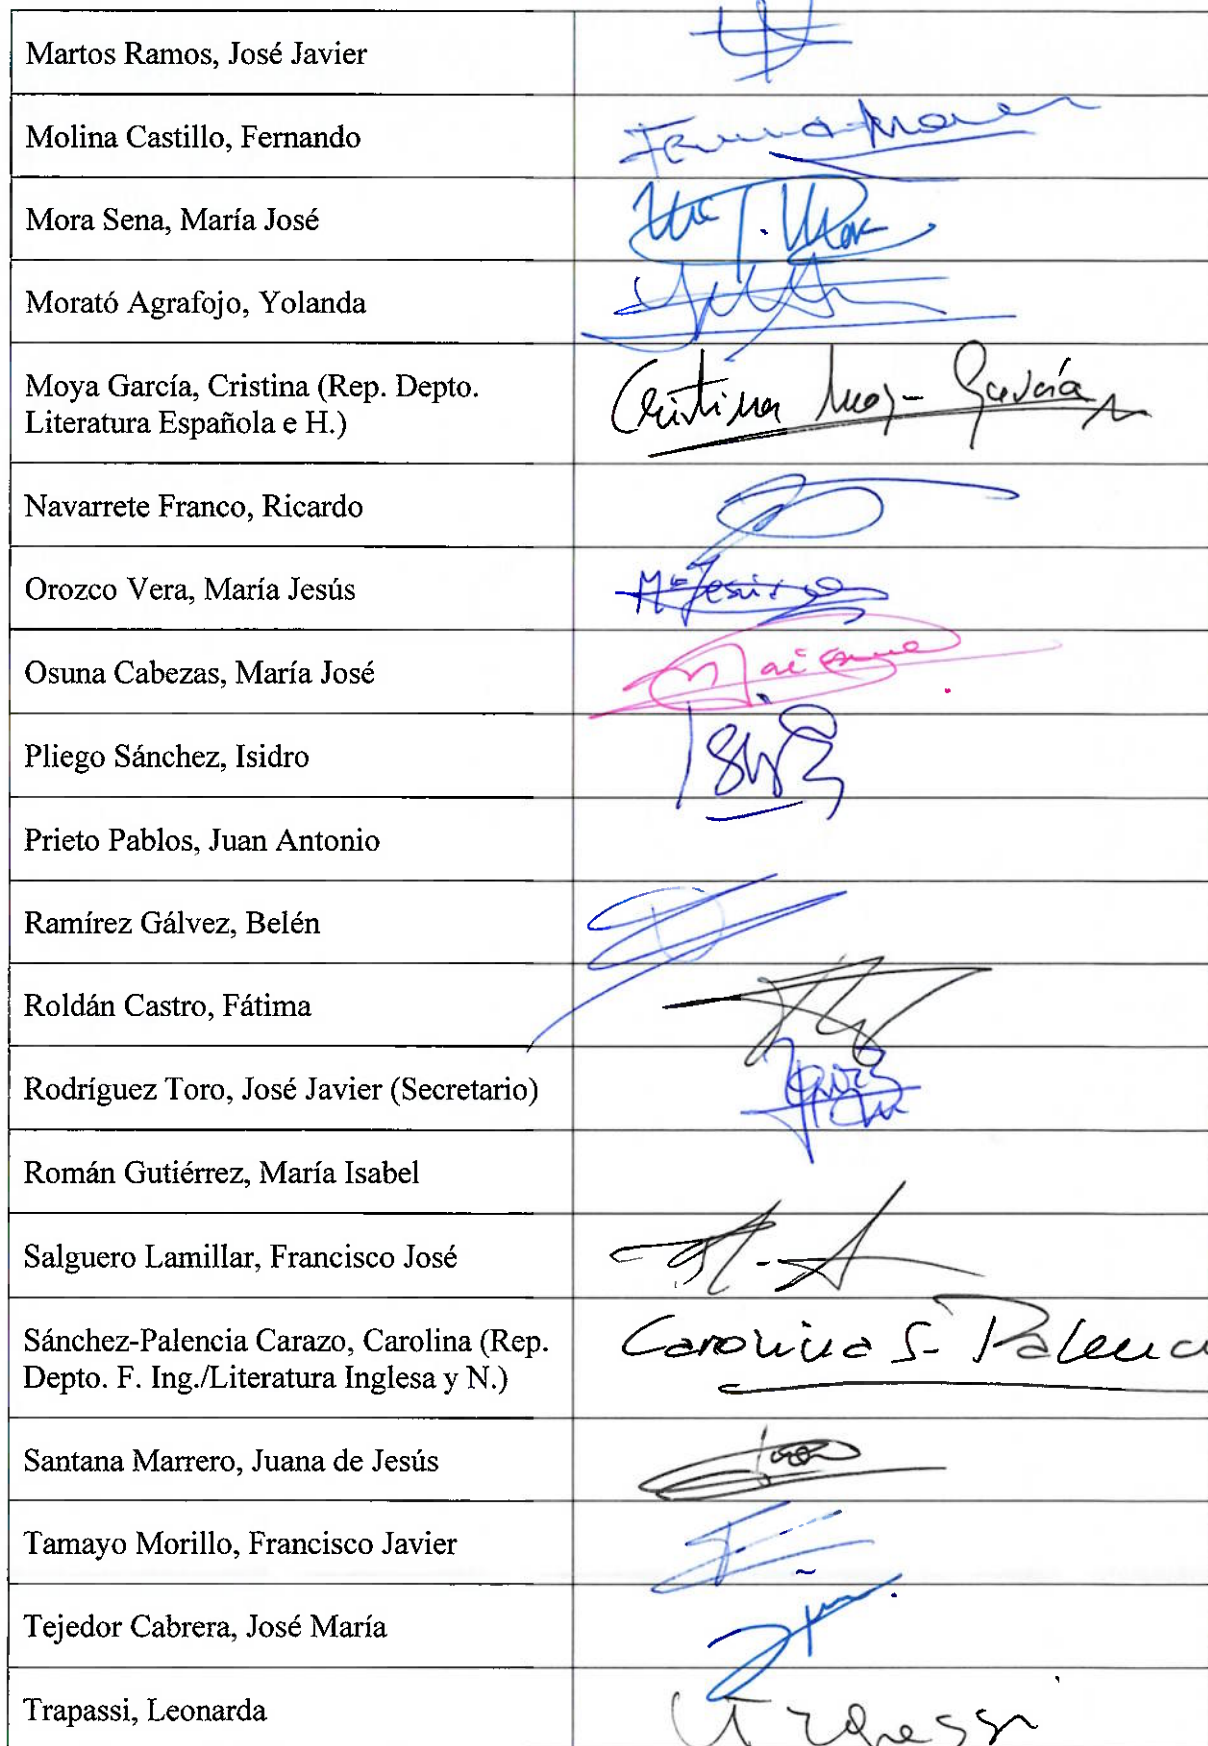 Martos Ramos, José Javier
Molina Castillo, Fernando
Mora Sena, María José
Morató Agrafojo, Yolanda
Moya García, Cristina (Rep. Depto.
Literatura Española e H.)
Cristina Moya García
Navarrete Franco, Ricardo
Orozco Vera, María Jesús
Mª Jesús
Osuna Cabezas, María José
Pliego Sánchez, Isidro
Prieto Pablos, Juan Antonio
Ramírez Gálvez, Belén
Roldán Castro, Fátima
Rodríguez Toro, José Javier (Secretario)
Román Gutiérrez, María Isabel
Salguero Lamillar, Francisco José
Sánchez-Palencia Carazo, Carolina (Rep.
Depto. F. Ing./Literatura Inglesa y N.)
Carolina S. Palenc
Santana Marrero, Juana de Jesús
Tamayo Morillo, Francisco Javier
Tejedor Cabrera, José María
Trapassi, Leonarda